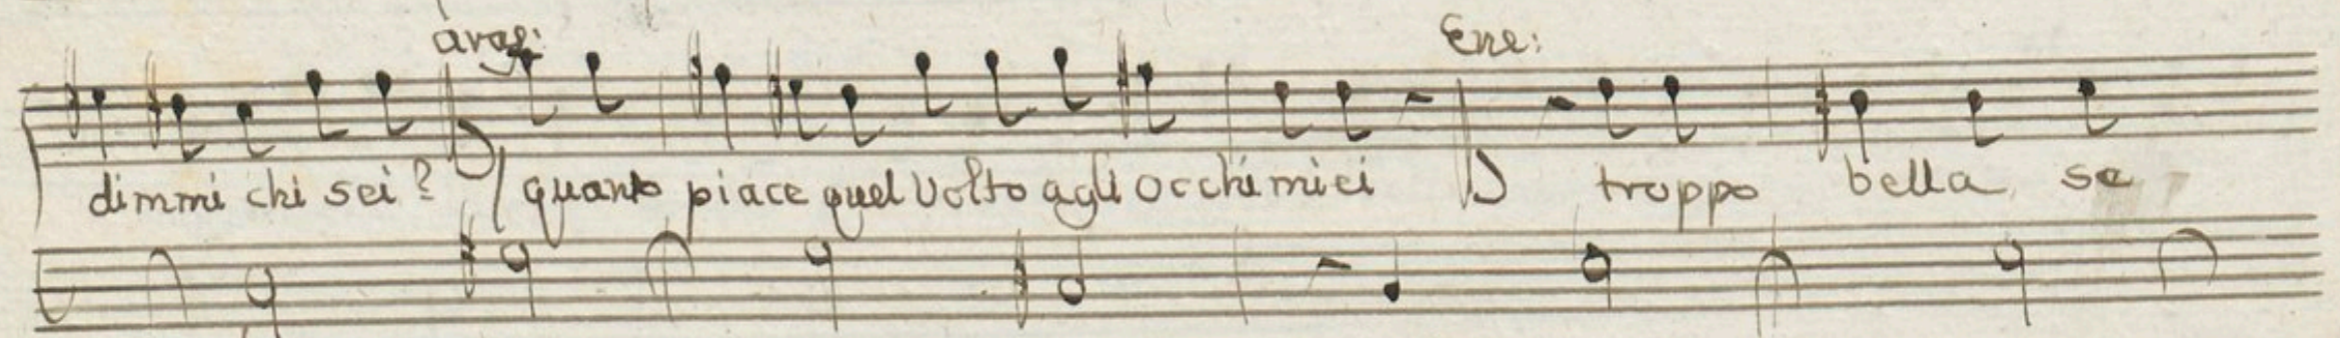 Aras: Ene:
dimmi chi sei? quanto piace quel volto agli occhi miei troppo bella se